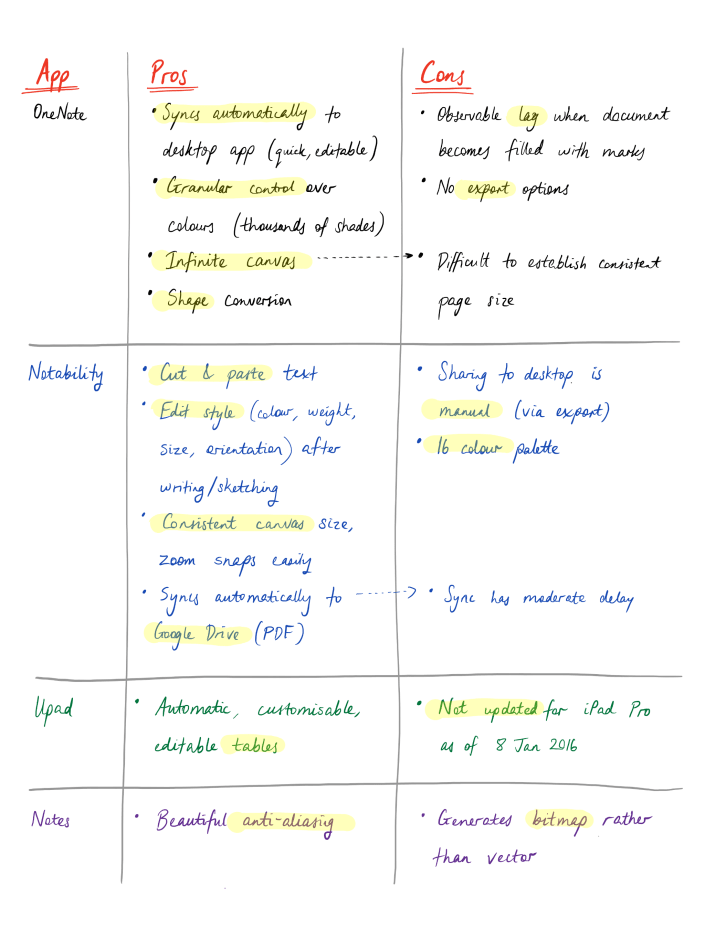 App
Pros
Cons
OneNote
• Syncs automatically to
desktop app (quick, editable)
• Granular control over
colours (thousands of shades)
• Infinite canvas
• Shape conversion
• Observable lag when document
becomes filled with marks
• No export options
• Difficult to establish consistent
page size
Notability
• Cut & paste text
• Edit style (colour, weight,
size, orientation) after
writing/sketching
• Consistent canvas size,
zoom snaps easily
• Syncs automatically to
Google Drive (PDF)
• Sharing to desktop is
manual (via export)
• 16 colour palette
• Sync has moderate delay
Upad
• Automatic, customisable,
editable tables
• Not updated for iPad Pro
as of 8 Jan 2016
Notes
• Beautiful anti-aliasing
• Generates bitmap rather
than vector